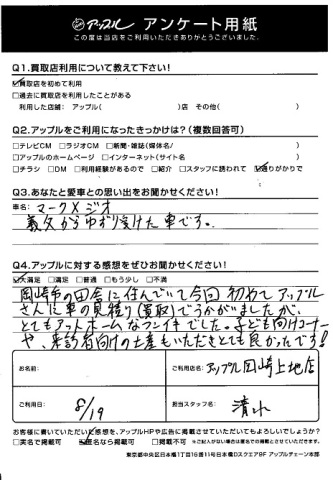 アップル アンケート用紙
この度は当店をご利用いただきありがとうございました。
Q1.買取店利用について教えて下さい!
☑買取店を初めて利用
□過去に買取店を利用したことがある
利用した店舗: アップル( )店 その他( )
Q2.アップルをご利用になったきっかけは?(複数回答可)
□テレビCM □ラジオCM □新聞・雑誌(媒体名/ )
□アップルのホームページ □インターネット(サイト名 )
□チラシ □DM □利用経験があるので □紹介 □スタッフに誘われて ☑通りがかりで
Q3.あなたと愛車との思い出をお聞かせください!
車名: マークXジオ
義父からゆずり受けた車です。
Q4.アップルに対する感想をぜひお聞かせください!
☑大満足 □満足 □普通 □もう少し □不満
岡崎市の田舎に住んでいて今回初めてアップル
さんに車の見積り(買取)でうかがいましたが、
とてもアットホームなフンイキでした。子ども向けコーナー
や、来訪者向けの土産もいただきとても良かったです!
お名前: ご利用店名: アップル岡崎上地店
ご利用日: 8/19 担当スタッフ名: 清水
お客様に書いていただいた感想を、アップルHPや広告に掲載させていただいてもよろしいでしょうか?
□実名で掲載可 ☑匿名なら掲載可 □掲載不可 ※ご記入がない場合は匿名での掲載とさせていただきます。
東京都中央区日本橋1丁目16番11号日本橋Dスクエア8F アップルチェーン本部